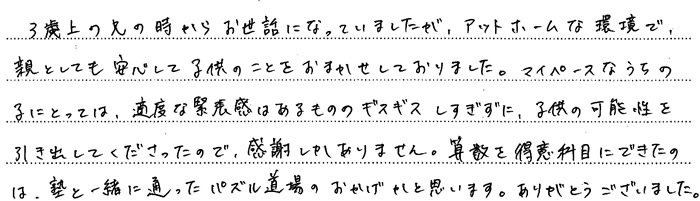 3歳上の兄の時からお世話になっていましたが、アットホームな環境で、
親としても安心して子供のことをおまかせしておりました。マイペースなうちの
子にとっては、適度な緊張感はあるもののギスギスしすぎずに、子供の可能性を
引き出してくださったので、感謝しかありません。算数を得意科目にできたの
は、塾と一緒に通ったパズル道場のおかげかと思います。ありがとうございました。